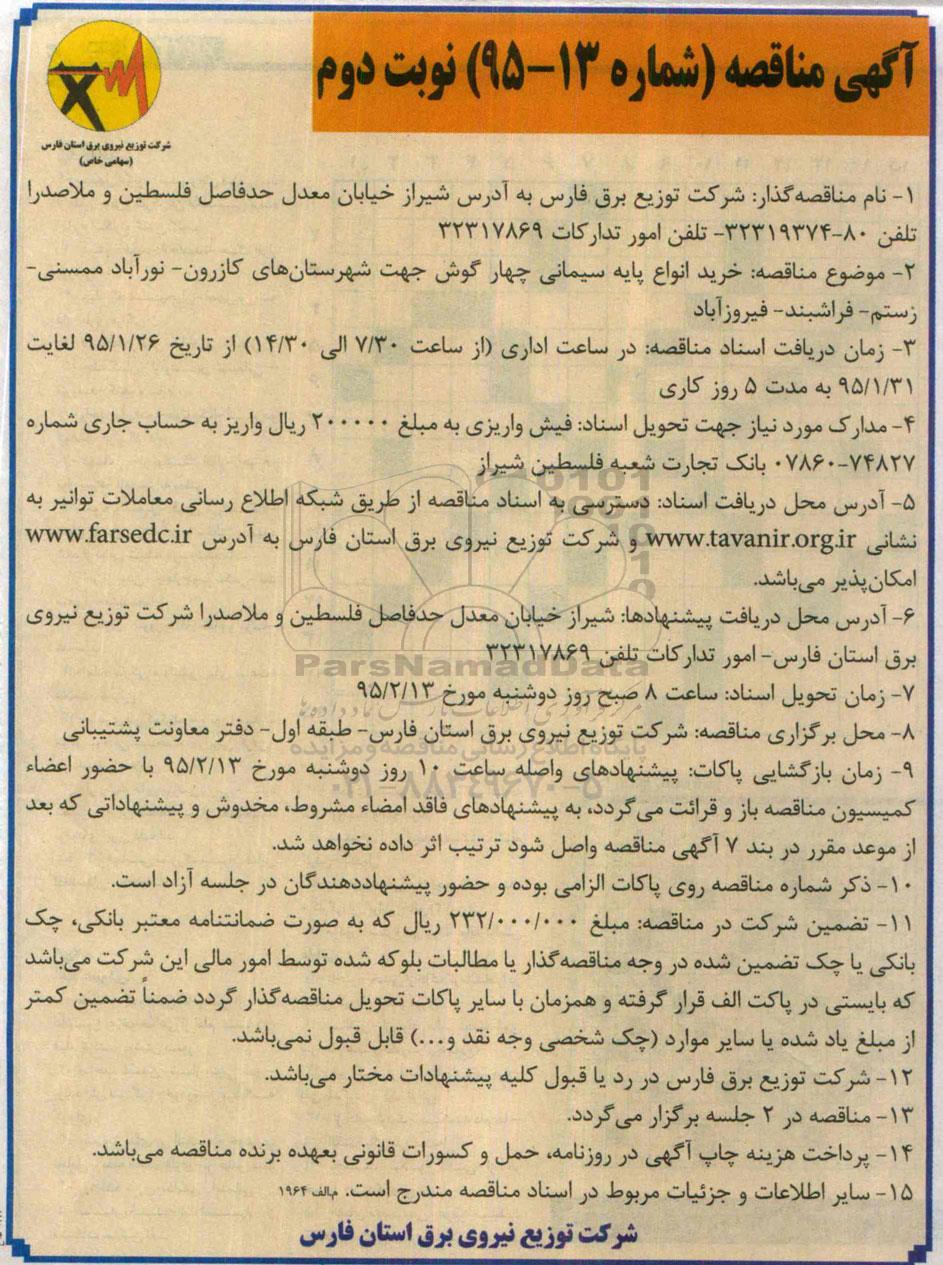 آگهی مناقصه (شماره ۱۳-۹۵) نوبت دوم
شرکت توزیع نیروی برق استان فارس
(سهامی خاص)
۱- نام مناقصه‌گذار: شرکت توزیع برق فارس به آدرس شیراز خیابان معدل حدفاصل فلسطین و ملاصدرا
تلفن ۸۰-۳۲۳۱۹۳۷۴- تلفن امور تدارکات ۳۲۳۱۷۸۶۹
۲- موضوع مناقصه: خرید انواع پایه سیمانی چهار گوش جهت شهرستان‌های کازرون- نورآباد ممسنی-
رستم- فراشبند- فیروزآباد
۳- زمان دریافت اسناد مناقصه: در ساعت اداری (از ساعت ۷/۳۰ الی ۱۴/۳۰) از تاریخ ۹۵/۱/۲۶ لغایت
۹۵/۱/۳۱ به مدت ۵ روز کاری
۴- مدارک مورد نیاز جهت تحویل اسناد: فیش واریزی به مبلغ ۲۰۰۰۰۰ ریال واریز به حساب جاری شماره
۰۷۸۶۰-۷۴۸۲۷ بانک تجارت شعبه فلسطین شیراز
۵- آدرس محل دریافت اسناد: دسترسی به اسناد مناقصه از طریق شبکه اطلاع رسانی معاملات توانیر به
نشانی www.tavanir.org.ir و شرکت توزیع نیروی برق استان فارس به آدرس www.farsedc.ir
امکان‌پذیر می‌باشد.
۶- آدرس محل دریافت پیشنهادها: شیراز خیابان معدل حدفاصل فلسطین و ملاصدرا شرکت توزیع نیروی
برق استان فارس- امور تدارکات تلفن ۳۲۳۱۷۸۶۹
ParsNamadData
۷- زمان تحویل اسناد: ساعت ۸ صبح روز دوشنبه مورخ ۹۵/۲/۱۳
۸- محل برگزاری مناقصه: شرکت توزیع نیروی برق استان فارس- طبقه اول- دفتر معاونت پشتیبانی
پایگاه اطلاع رسانی مناقصه و مزایده
۹- زمان بازگشایی پاکات: پیشنهادهای واصله ساعت ۱۰ روز دوشنبه مورخ ۹۵/۲/۱۳ با حضور اعضاء
۰۲۱-۸۸۳۴۹۶۷۰-۵
کمیسیون مناقصه باز و قرائت می‌گردد، به پیشنهادهای فاقد امضاء مشروط، مخدوش و پیشنهاداتی که بعد
از موعد مقرر در بند ۷ آگهی مناقصه واصل شود ترتیب اثر داده نخواهد شد.
۱۰- ذکر شماره مناقصه روی پاکات الزامی بوده و حضور پیشنهاددهندگان در جلسه آزاد است.
۱۱- تضمین شرکت در مناقصه: مبلغ ۲۳۲/۰۰۰/۰۰۰ ریال که به صورت ضمانتنامه معتبر بانکی، چک
بانکی یا چک تضمین شده در وجه مناقصه‌گذار یا مطالبات بلوکه شده توسط امور مالی این شرکت می‌باشد
که بایستی در پاکت الف قرار گرفته و همزمان با سایر پاکات تحویل مناقصه‌گذار گردد ضمناً تضمین کمتر
از مبلغ یاد شده یا سایر موارد (چک شخصی وجه نقد و...) قابل قبول نمی‌باشد.
۱۲- شرکت توزیع برق فارس در رد یا قبول کلیه پیشنهادات مختار می‌باشد.
۱۳- مناقصه در ۲ جلسه برگزار می‌گردد.
۱۴- پرداخت هزینه چاپ آگهی در روزنامه، حمل و کسورات قانونی بعهده برنده مناقصه می‌باشد.
۱۵- سایر اطلاعات و جزئیات مربوط در اسناد مناقصه مندرج است. م‌الف ۱۹۶۴
شرکت توزیع نیروی برق استان فارس